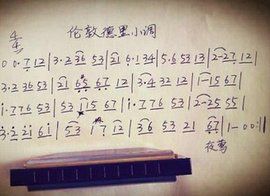 伦敦德里小调
4/4
0 0·7 12 | 3·2 36 53 | 21 6·134 | 5·6 53 13 | 2-27 12 |
3·2 36 53 | 21 65 67 12 | 3·4 32 12 | 1-15 67 |
1·776 53 | 53 115 67 | 1·776 53 | 2-25 55 |
3·2 21 61 | 53 17 12 | 36 53 21 67 | 1-00 :||
夜莺